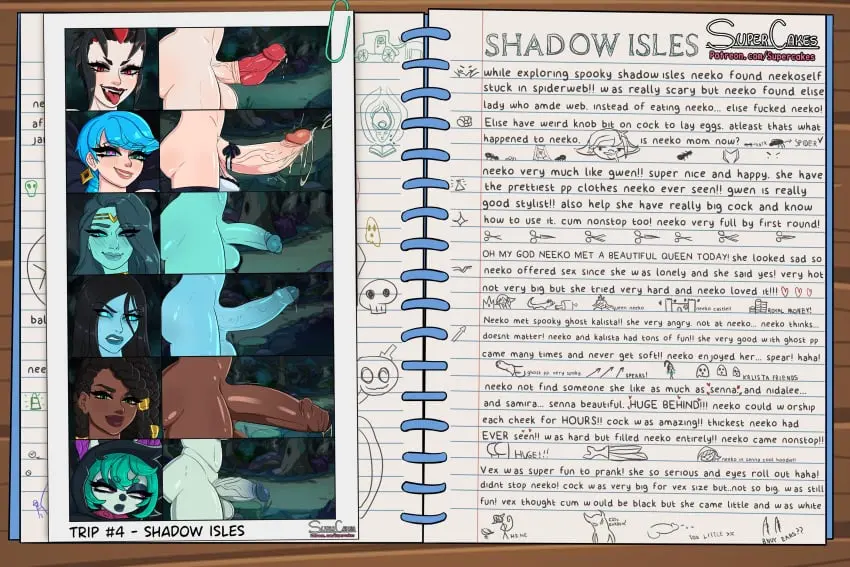 SHADOW ISLES
SUPERCAKES
Patreon.com/Supercakes
while exploring spooky shadow isles neeko found neekoself
stuck in spiderweb!! was really scary but neeko found elise
lady who amde web. instead of eating neeko... elise fucked neeko!
Elise have weird knob bit on cock to lay eggs. atleast thats what
happened to neeko. is neeko mom now? SPIDER
neeko very much like gwen!! super nice and happy. she have
the prettiest pp clothes neeko ever seen!! gwen is really
good stylist!! also help she have really big cock and know
how to use it. cum nonstop too! neeko very full by first round!
OH MY GOD NEEKO MET A BEAUTIFUL QUEEN TODAY! she looked sad so
neeko offered sex since she was lonely and she said yes! very hot
not very big but she tried very hard and neeko loved it!!!
queen neeko neeko castle!! ROYAL MONEY!
Neeko met spooky ghost kalista!! she very angry. not at neeko... neeko thinks...
doesnt matter! neeko and kalista had tons of fun!! she very good with ghost pp
came many times and never get soft!! neeko enjoyed her... spear! haha!
ghost pp. very sooky. SPEARS! KALISTA FRIENDS
neeko not find someone she like as much as senna and nidalee...
and samira... senna beautiful. HUGE BEHIND!!! neeko could worship
each cheek for HOURS!! cock was amazing!! thickest neeko had
EVER seen!! was hard but filled neeko entirely!! neeko came nonstop!!
HUGE!!! neeko in senna cool hoodie!!
Vex was super fun to prank! she so serious and eyes roll out haha!
didnt stop neeko! cock was very big for vex size but..not so big. was still
fun! vex thought cum would be black but she came little and was white
TOO LITTLE
TRIP #4 - SHADOW ISLES
SUPERCAKES
Patreon.com/Supercakes